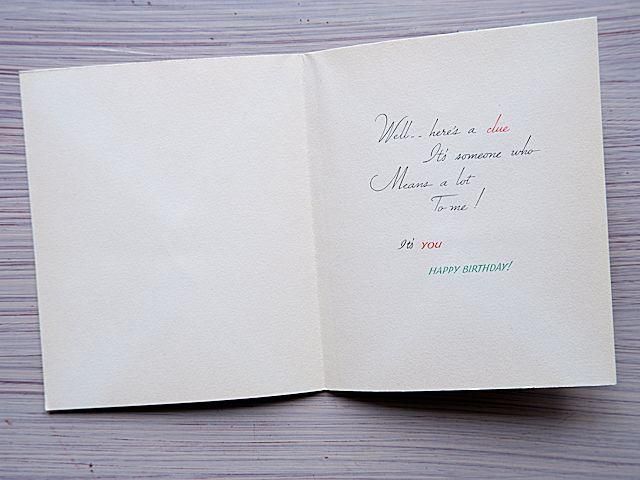 Well-- here's a clue
It's someone who
Means a lot
To me!
It's YOU
HAPPY BIRTHDAY!